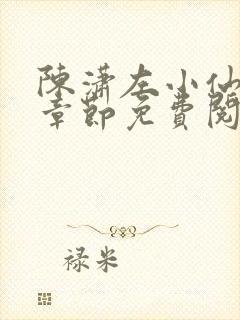 陳瀟左小仙
章節免費閱
禄米